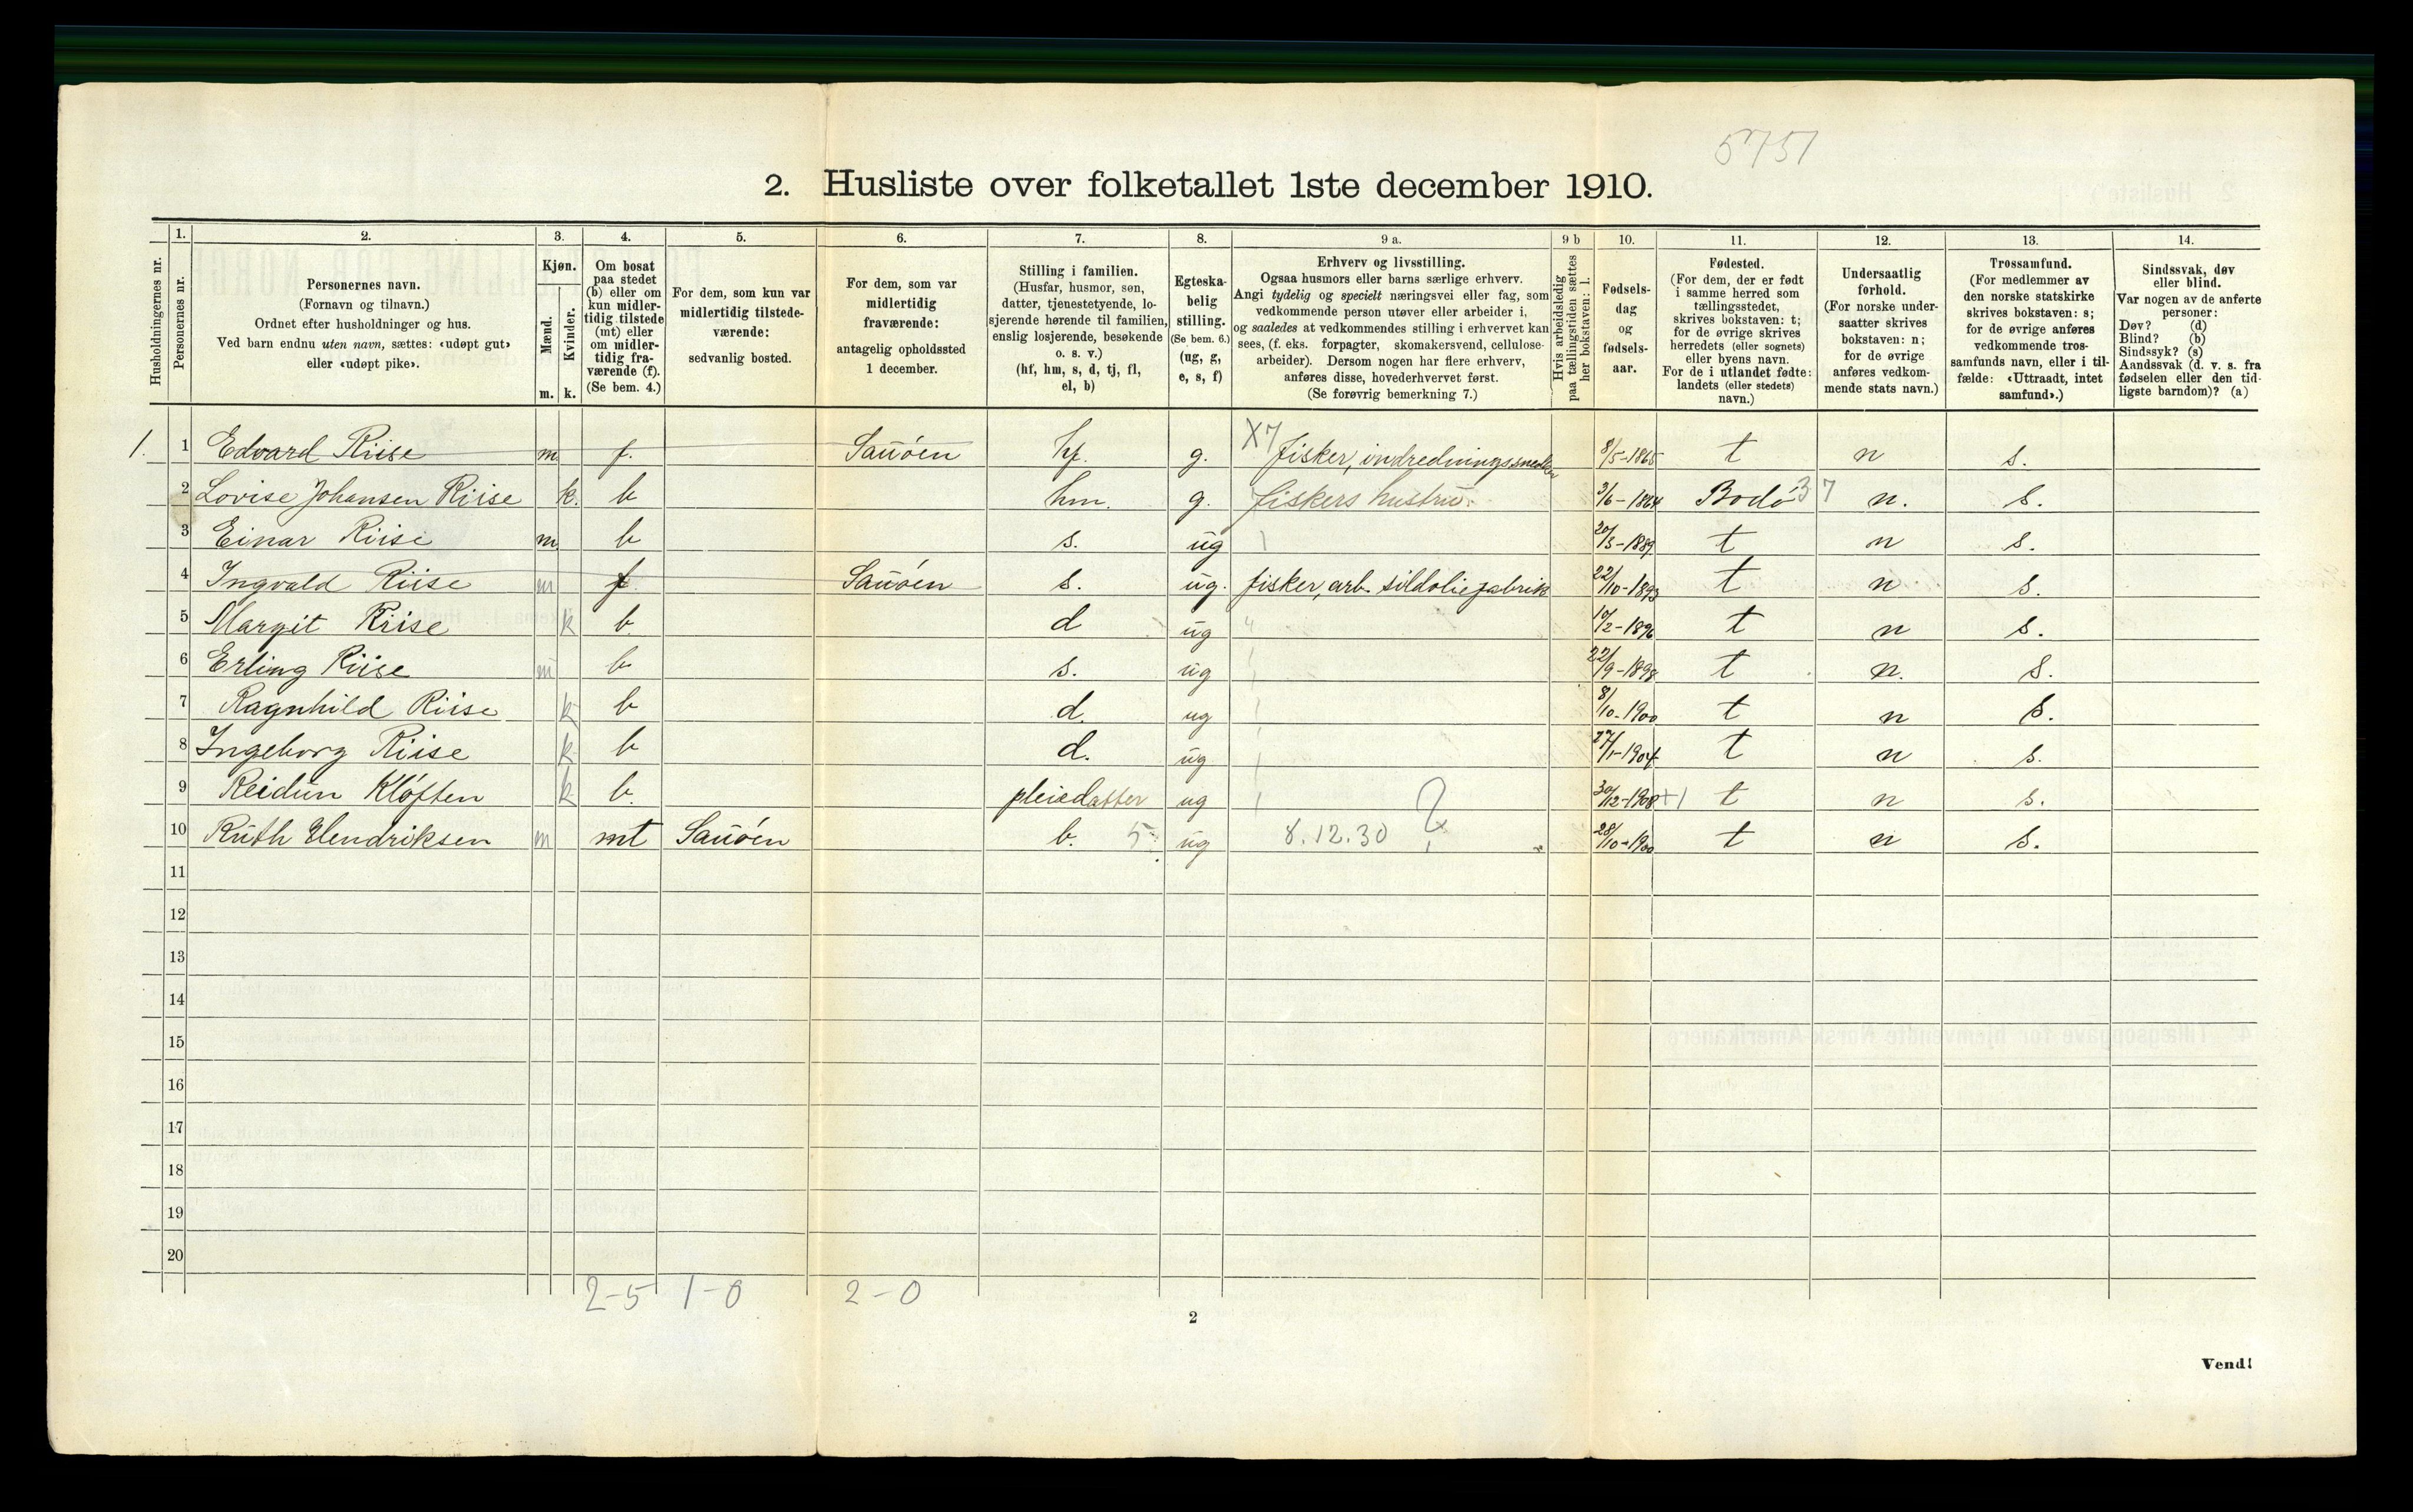 5751
2. Husliste over folketallet 1ste december 1910.
Husholdningernes nr.
1. Personernes nr.
2. Personernes navn. (Fornavn og tilnavn.) Ordnet efter husholdninger og hus. Ved barn endnu uten navn, sættes: «udøpt gut» eller «udøpt pike».
3. Kjøn. Mænd. m. Kvinder. k.
4. Om bosat paa stedet (b) eller om kun midlertidig tilstede (mt) eller om midlertidig fraværende (f). (Se bem. 4.)
5. For dem, som kun var midlertidig tilstedeværende: sedvanlig bosted.
6. For dem, som var midlertidig fraværende: antagelig opholdssted 1 december.
7. Stilling i familien. (Husfar, husmor, søn, datter, tjenestetyende, losjerende hørende til familien, enslig losjerende, besøkende o. s. v.) (hf, hm, s, d, tj, fl, el, b)
8. Egteskabelig stilling. (Se bem. 6.) (ug, g, e, s, f)
9 a. Erhverv og livsstilling. Ogsaa husmors eller barns særlige erhverv. Angi tydelig og specielt næringsvei eller fag, som vedkommende person utøver eller arbeider i, og saaledes at vedkommendes stilling i erhvervet kan sees, (f. eks. forpagter, skomakersvend, cellulosearbeider). Dersom nogen har flere erhverv, anføres disse, hovederhvervet først. (Se forøvrig bemerkning 7.)
9 b Hvis arbeidsledig paa tællingstiden sættes her bokstaven: l.
10. Fødselsdag og fødselsaar.
11. Fødested. (For dem, der er født i samme herred som tællingsstedet, skrives bokstaven: t; for de øvrige skrives herredets (eller sognets) eller byens navn. For de i utlandet fødte: landets (eller stedets) navn.)
12. Undersaatlig forhold. (For norske undersaatter skrives bokstaven: n; for de øvrige anføres vedkommende stats navn.)
13. Trossamfund. (For medlemmer av den norske statskirke skrives bokstaven: s; for de øvrige anføres vedkommende trossamfunds navn, eller i tilfælde: «Uttraadt, intet samfund».)
14. Sindssvak, døv eller blind. Var nogen av de anførte personer: Døv? (d) Blind? (b) Sindssyk? (s) Aandssvak (d. v. s. fra fødselen eller den tidligste barndom)? (a)
1. 1 Edvard Riise m f. Sauøen hf. g. X7 fisker, indredningssnedker 8/5-1865 t n s.
2 Lovise Johansen Riise k. b hm. g. fiskers hustru 3/6-1864 Bodø 37 n. s.
3 Einar Riise m b s. ug 20/3-1889 t n s.
4 Ingvald Riise m f Sauøen s. ug. fisker, arb. sildoliefabrik 22/10-1893 t n s.
5 Margit Riise k b. d ug 10/2-1896 t n s.
6 Erling Riise m b s. ug 22/9-1898 t n. s.
7 Ragnhild Riise k b d. ug 8/10-1900 t n s.
8 Ingeborg Riise k b d. ug 27/1-1904 t n s.
9 Reidun Kløften k b. pleiedatter ug 30/12-1908 +1 t n s.
10 Ruth Hendriksen m mt Sauøen b. 5 ug 8.12.30 ? 28/10-1900 t n s.
11
12
13
14
15
16
17
18
19
20
2-5 1-0 2-0
2
Vend!